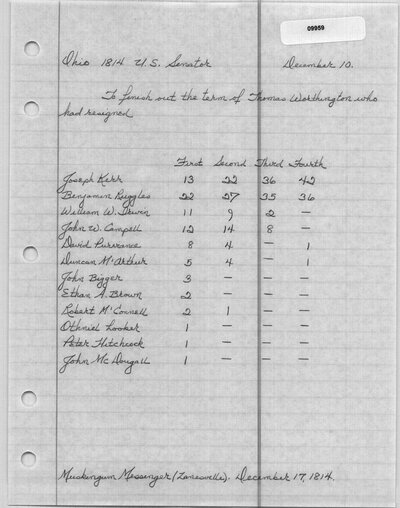 09959
Ohio 1814 U.S. Senator December 10.
To finish out the term of Thomas Worthington who
had resigned
First Second Third Fourth
Joseph Kerr 13 22 36 42
Benjamin Ruggles 22 27 35 36
William W. Irwin 11 9 2 —
John W. Campell 12 14 8 —
David Purviance 8 4 — 1
Duncan McArthur 5 4 — 1
John Bigger 3 — — —
Ethan A. Brown 2 — — —
Robert McConnell 2 1 — —
Othniel Looker 1 — — —
Peter Hitchcock 1 — — —
John McDougall 1 — — —
Muskingum Messenger (Zanesville). December 17, 1814.